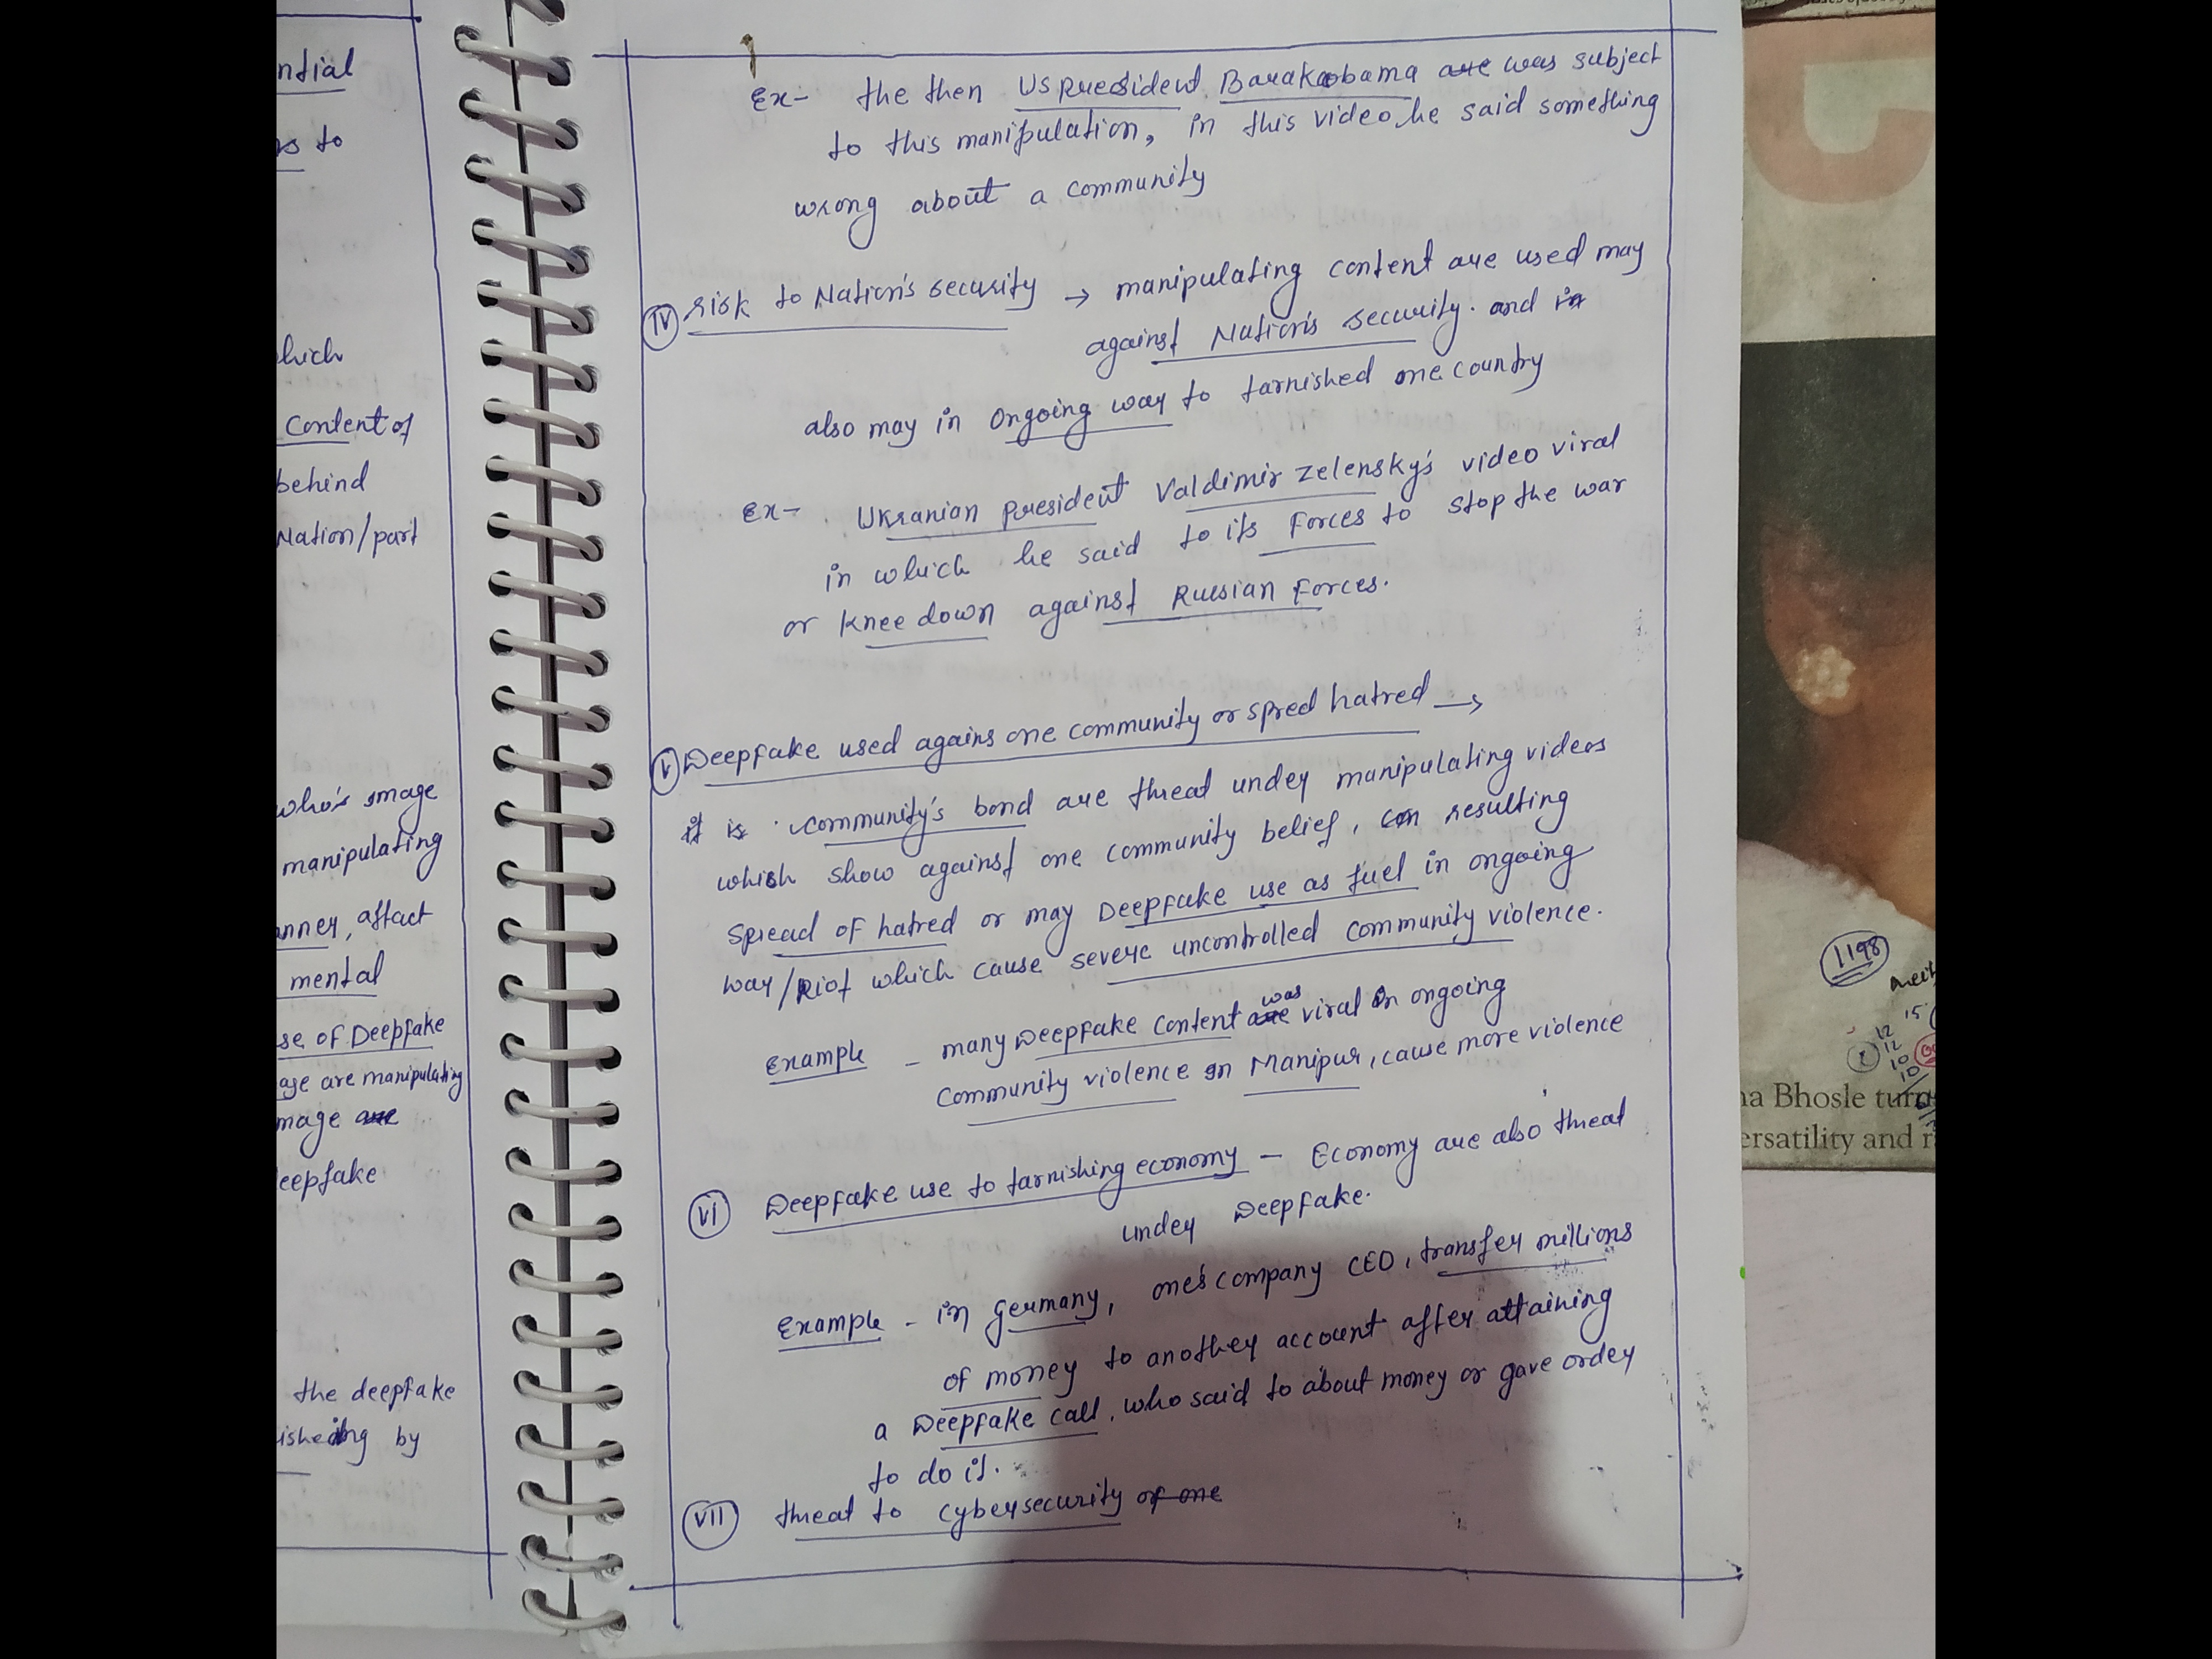 ntial
rs to
hich
Content of
behind
Nation/part
who's image
manipulating
anner, affact
mental
se of Deepfake
age are manipulating
mage are
eepfake
the deepfake
isheding by
Ex- the then US President Barakobama are was subject
to this manipulation, in this video, he said something
wrong about a community
(iv) risk to Nation's security → manipulating content are used may
against Nation's security. and in
also may in ongoing way to tarnished one country
Ex- Ukranian president Valdimir Zelensky's video viral
in which he said to its Forces to stop the war
or knee down against Russian Forces.
(v) Deepfake used agains one community or spred hatred →
it is community's bond are threat under manipulating videos
which show against one community belief, can resulting
spread of hatred or may Deepfake use as fuel in ongoing
way/Riot which cause severe uncontrolled community violence.
Example - many Deepfake content are was viral in ongoing
community violence in Manipur, cause more violence
(vi) Deepfake use to tarnishing economy - Economy are also threat
under Deepfake.
Example - in Germany, one's company CEO, transfer millions
of money to another account after attaining
a Deepfake call, who said to about money or gave order
to do it.
(vii) threat to cybersecurity of one
1198
15
12
12
10
10
na Bhosle turns
ersatility and r